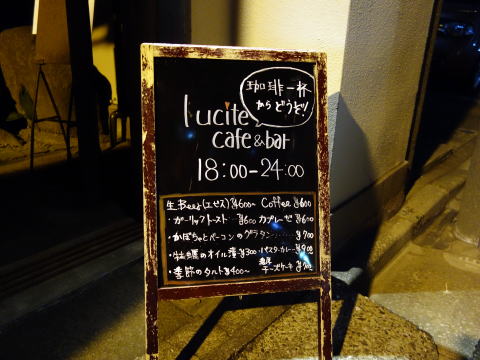 珈琲一杯
からどうぞ!
lucite
cafe&bar
18:00-24:00
生Beer(エビス)¥600~ Coffee ¥600
・ガーリックトースト…¥600 カプレーゼ ¥600
・かぼちゃとベーコンのグラタン……¥700
・牡蠣のオイル漬 ¥300 ・バスターカレー ¥900
・季節のタルト ¥400~ 濃厚チーズケーキ